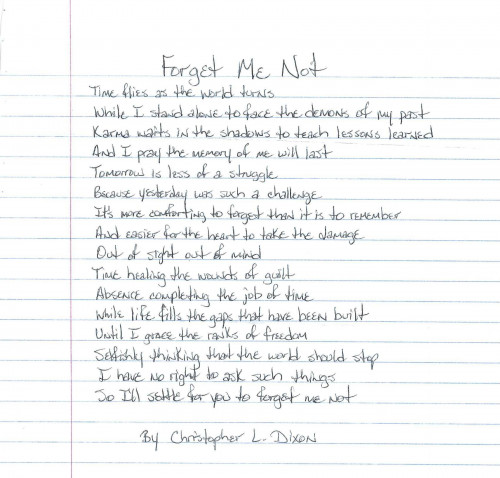 Forget Me Not
Time flies as the world turns
While I stand alone to face the demons of my past
Karma waits in the shadows to teach lessons learned
And I pray the memory of me will last
Tomorrow is less of a struggle
Because yesterday was such a challenge
It's more comforting to forget than it is to remember
And easier for the heart to take the damage
Out of sight out of mind
Time healing the wounds of guilt
Absence completing the job of time
While life fills the gaps that have been built
Until I grace the ranks of freedom
Selfishly thinking that the world should stop
I have no right to ask such things
So I'll settle for you to forget me not
By Christopher L. Dixon